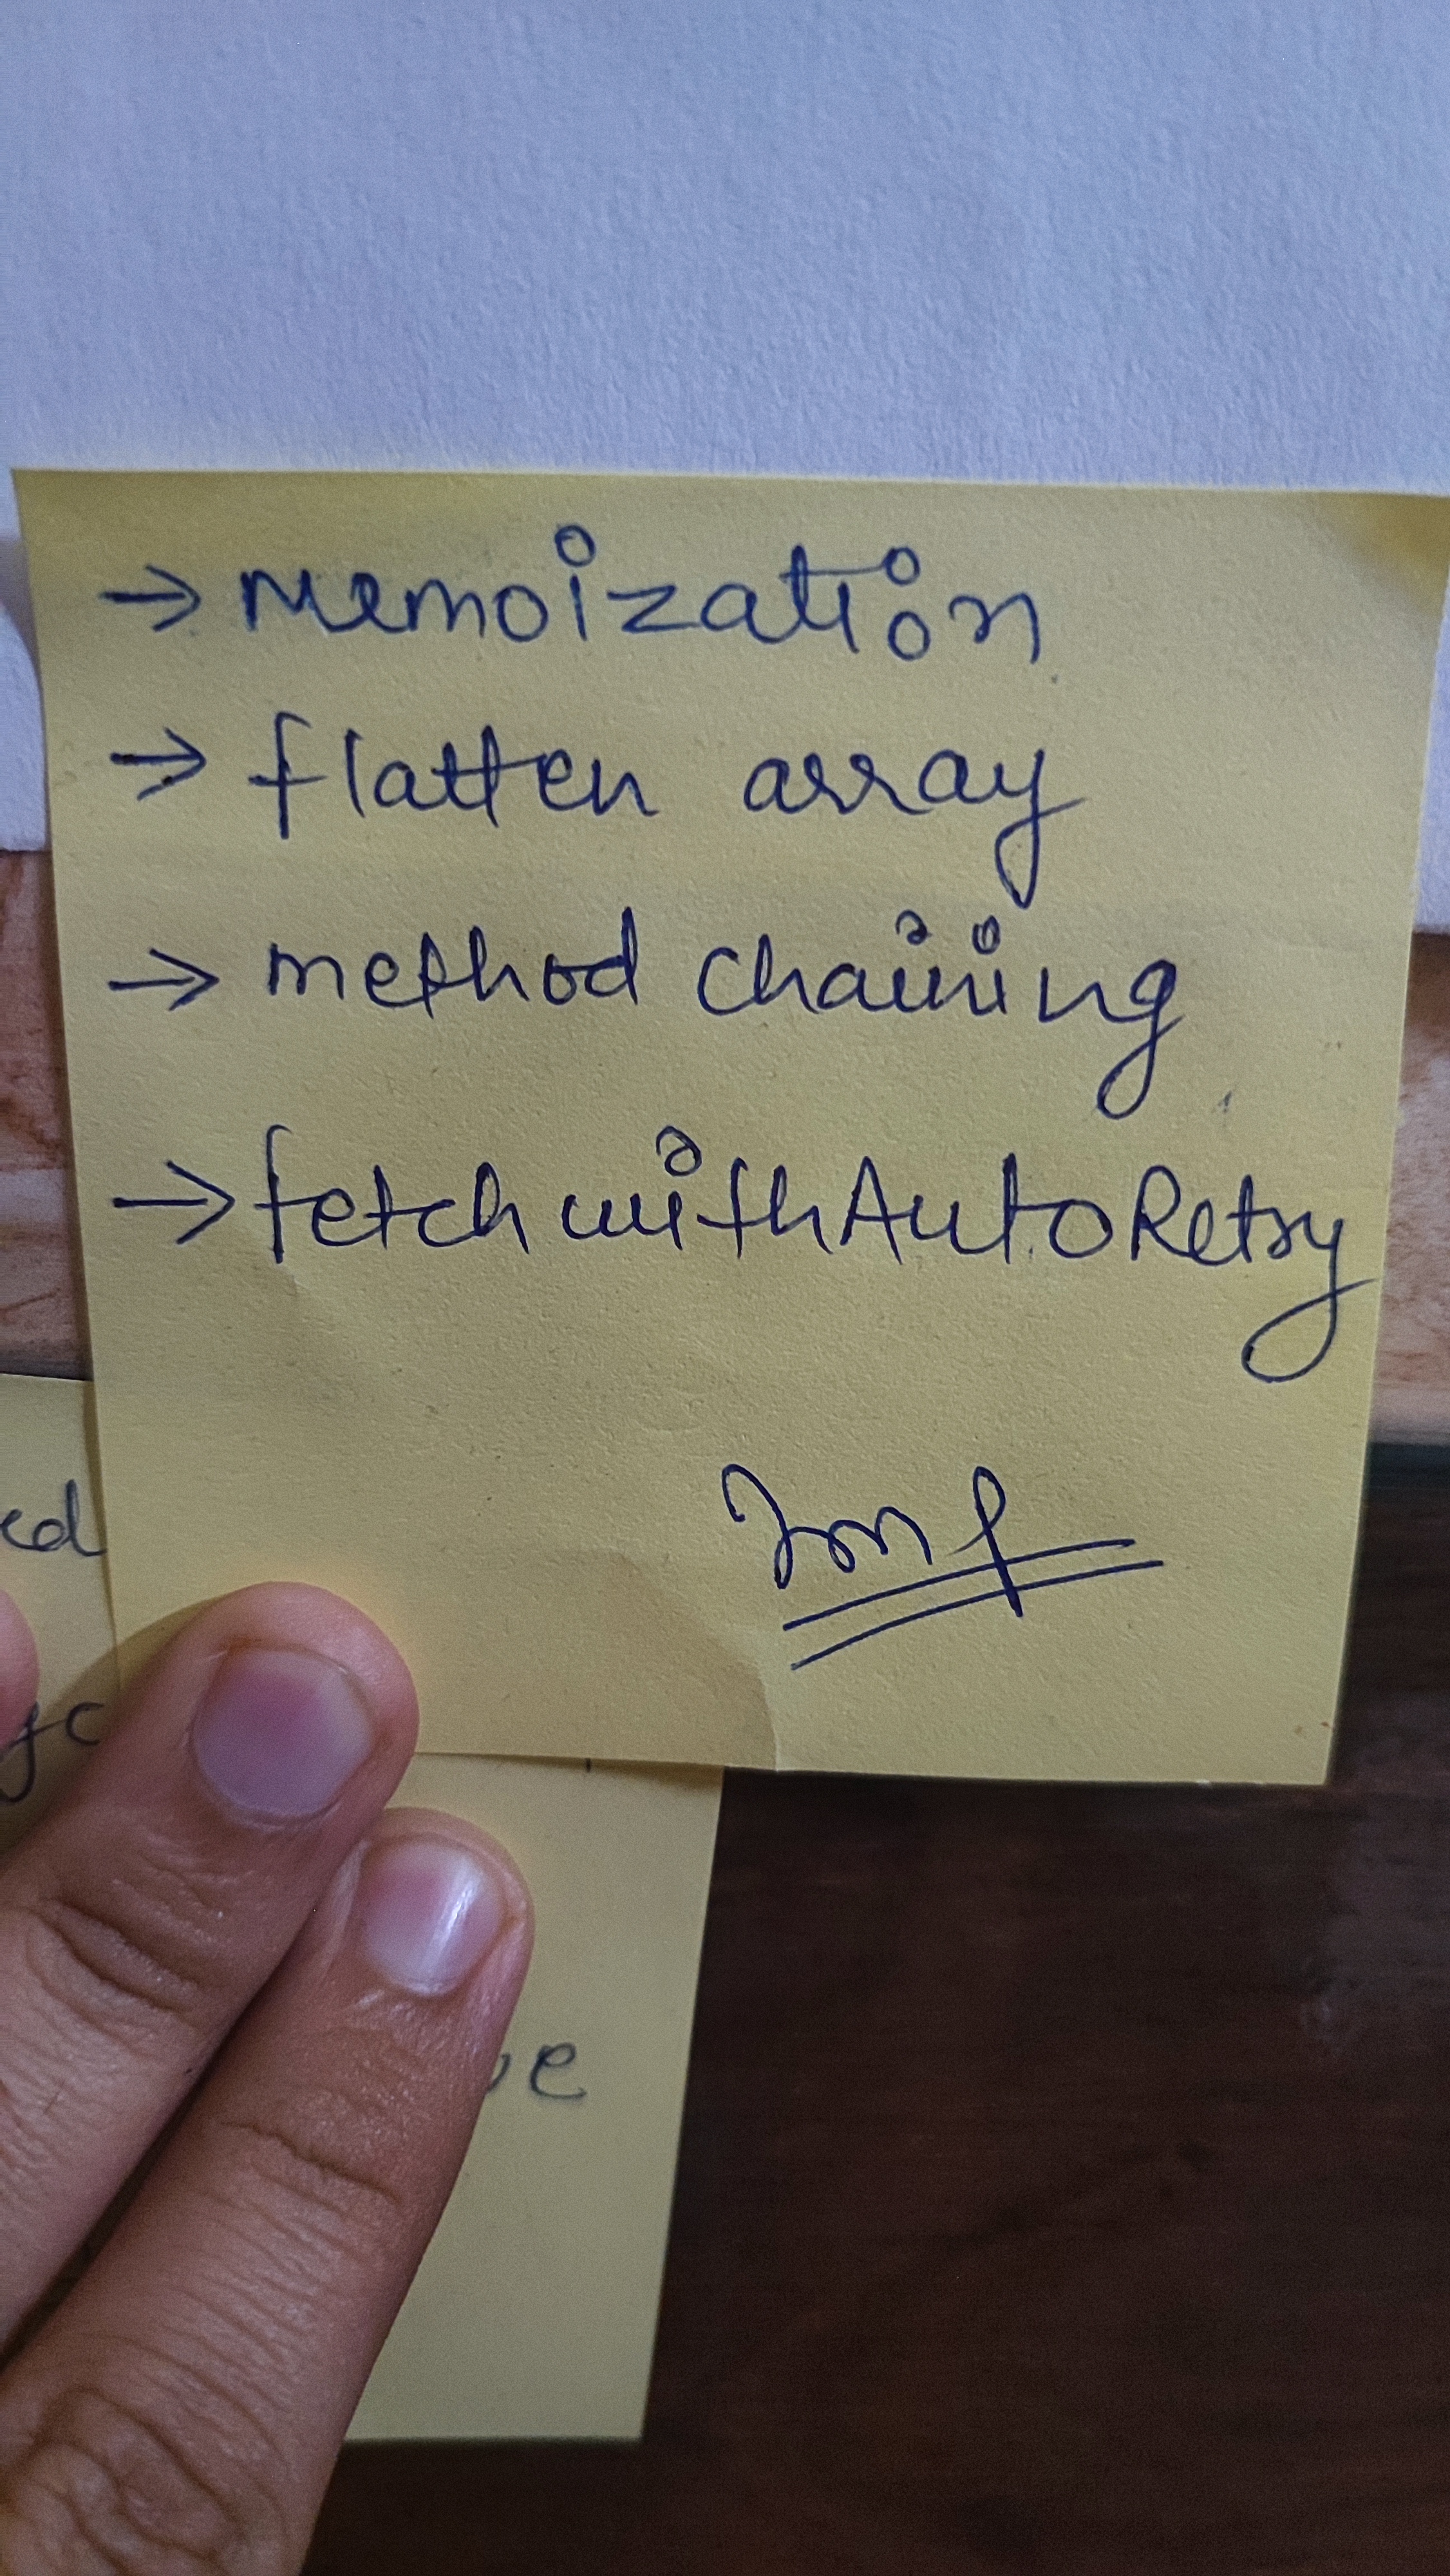 → Memoization
→ flatten array
→ method chaining
→ fetchwithAutoRetry
Imp
ed
ve